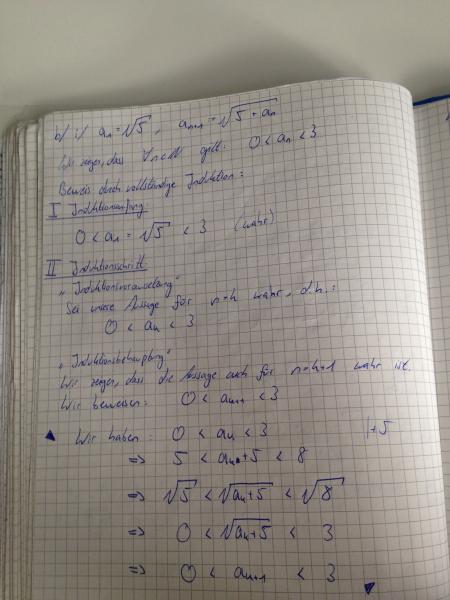 b) i) a₁ = √5 , aₙ₊₁ = √(5 + aₙ)
Wir zeigen, dass ∀n∈ℕ gilt: 0 < aₙ < 3
Beweis durch vollständige Induktion:
I Induktionsanfang
0 < a₁ = √5 < 3 (wahr)
II Induktionsschritt
„Induktionsvoraussetzung"
Sei unsere Aussage für n=k wahr, d.h.:
0 < aₖ < 3
„Induktionsbehauptung"
Wir zeigen, dass die Aussage auch für n=k+1 wahr ist.
Wir beweisen: 0 < aₖ₊₁ < 3
▲ Wir haben: 0 < aₖ < 3 |+5
=> 5 < aₖ+5 < 8
=> √5 < √(aₖ+5) < √8
=> 0 < √(aₖ+5) < 3
=> 0 < aₖ₊₁ < 3